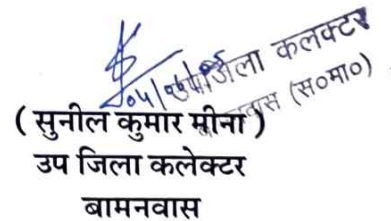 उपजिला कलक्टर
(स०मा०)
( सुनील कुमार मीना )
उप जिला कलेक्टर
बामनवास